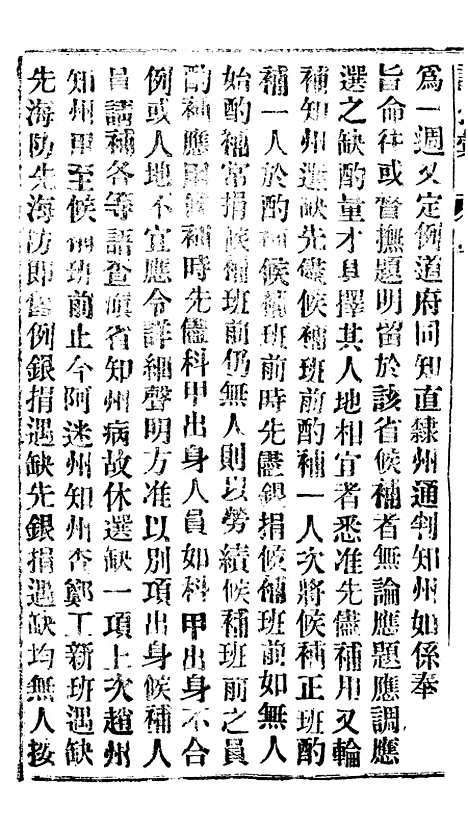 爲一週又定例道府同知直隸州通判知州如係奉
旨命往或督撫題明留於該省候補者無論應題應調應
選之缺酌量才具擇其人地相宜者悉准先儘補用又輪
補知州選缺先儘候補班前酌補一人次將候補正班酌
補一人於酌補候補班前時先儘銀捐候補班前如無人
始酌補常捐候補班前仍無人則以勞績候補班前之員
酌補應酌補時先儘科甲出身人員如科甲出身不合
例或人地不宜應令詳細聲明方准以別項出身候補人
員請補各等語查滇省知州病故休選缺一項上次趙州
知州軍至候補班前止今阿迷州知州查鄭工新班遇缺
先海防先海防卽舊例銀捐遇缺先銀捐遇缺均無人按